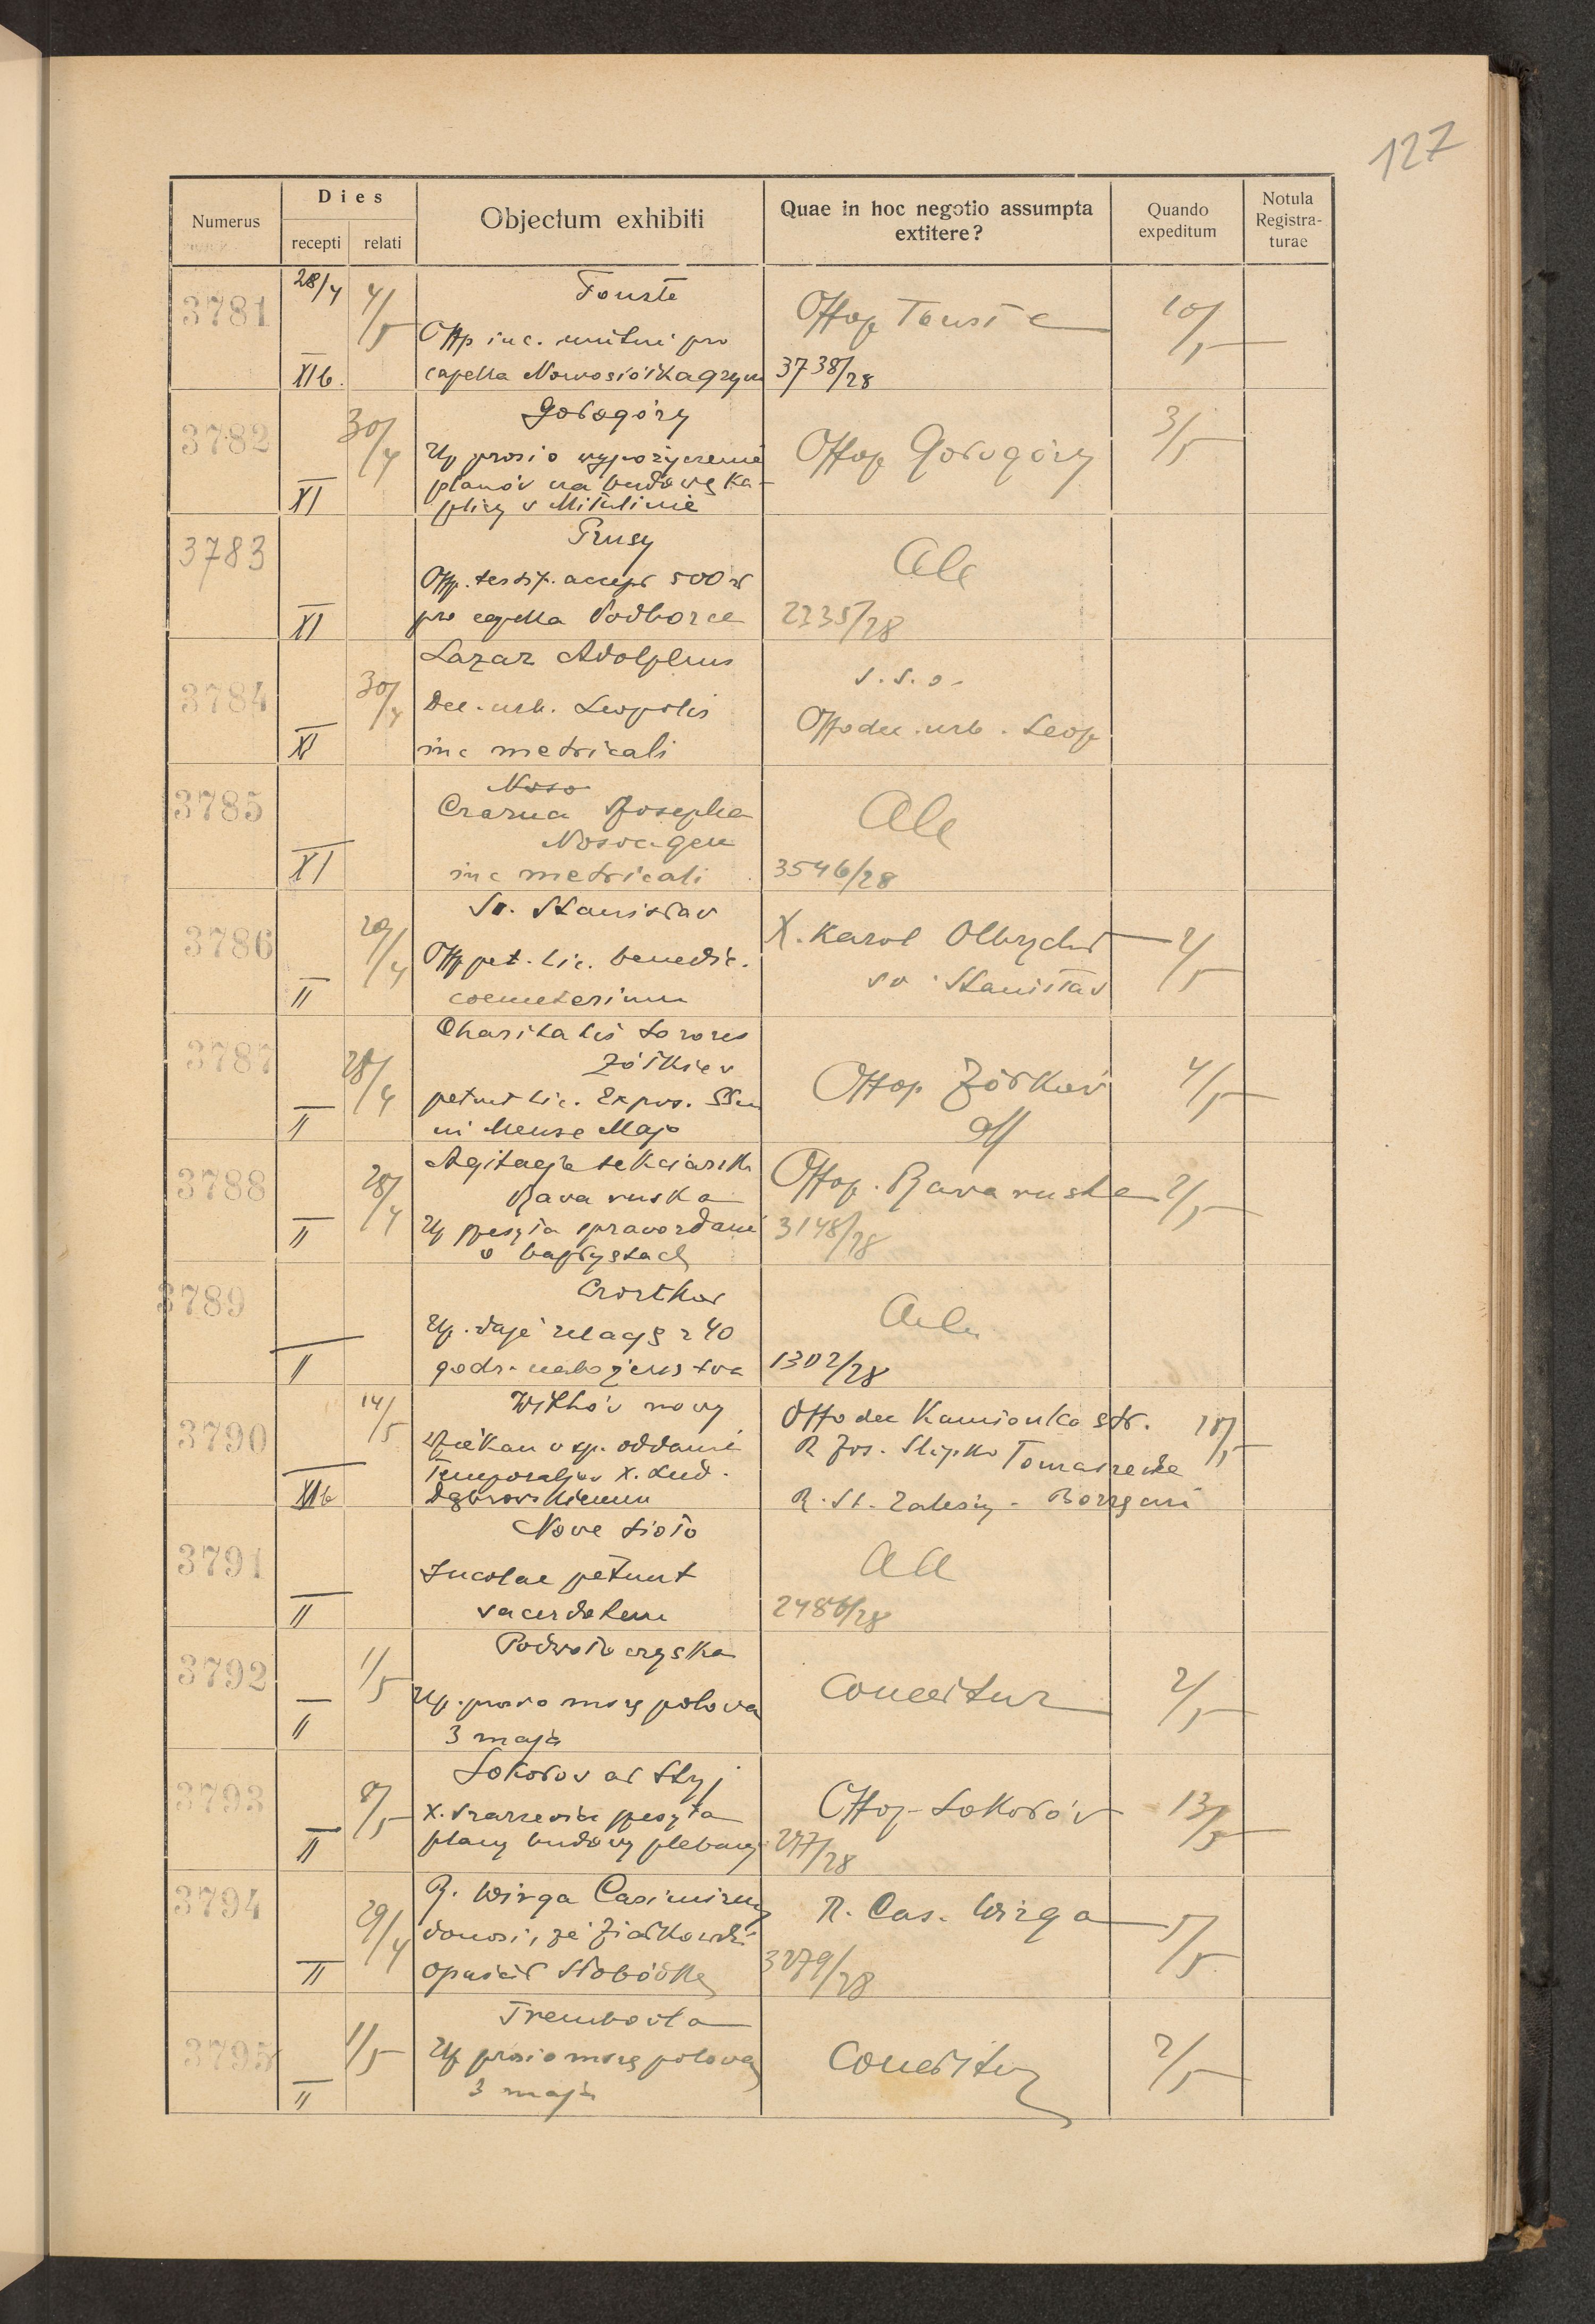 127
Numerus
Dies
recepti relati
Objectum exhibiti
Quae in hoc negotio assumpta
extitere?
Quando
expeditum
Notula
Registra-
turae
3781 28/4 4/5 Touste
Offop Touste 10/5
Offp inc. unitui pro
XIb. capella Nowosiółkagrzym 3738/28
3782 30/4 Gołogóry
Offop Gołogóry 3/5
Up prosi o wypożyczenie
planów na budowę ka-
XI plicy w Mitulinie
3783 Prusy
Ale
Offp. testif. accept 500 zł
XI pro capella Podborce 2235/28
3784 30/4 Lazar Adolphus
s.s.o.
Dec. urb. Leopolis
Offo dec. urb. Leop
XI inc metricali
3785 Noso
Czarna Josepha
Ale
XI inc metricali 3546/28
3786 29/4 Sv. Stanisław
X. Karol Olbrycht 2/5
Offp pet. lic. benedic.
sv. Stanisław
II coemeterium
3787 28/4 Charitatis Sorores
Żółkiew
Offop Żółkiew 4/5
petunt lic. Expos. SSmi
II in Mense Majo
3788 28/4 Agitacja sekciarsk
Offop. Rava ruska 2/5
Rava ruska
II Up przesyła sprawozdanie 3148/28
o baptystach
3789 Czortków
Up. daje relację z 40
II godz. nabożenstwa 1302/28
3790 14/5 Witków nowy
Offo dec Kamionka str. 18/5
Dziekan v sp. oddania
R Jos. Slipko Tomaszewce
Temporaljów X. Lud.
XIb Dąbrowskiemu
R. St. Zalesiy - Borszcow
3791 Nowe Sioło
Incolae petunt
II sacerdotem 2486/28
3792 1/5 Podwołoczyska
conceditur 2/5
Up. prosi o mszę polową
II 3 maja
3793 8/5 Sokołów ad Stryj
Offop Sokołów 13/5
X. przesyła
II plany budowy plebanji 277/28
3794 29/4 R. Wirga Casimirus
R. Cas. Wirga 5/5
donosi, że Ziółkowski
II opuścił Słobódkę 3279/28
3795 1/5 Trembowla
Conceditur 2/5
Up prosi o mszę polową
II 3 maja